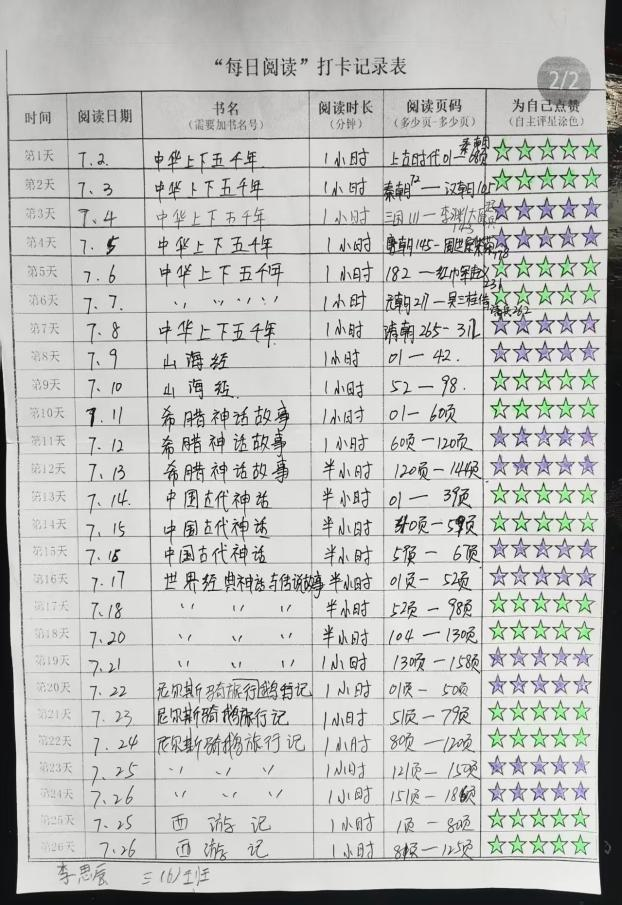 “每日阅读”打卡记录表
2/2
时间 阅读日期 书名 阅读时长 阅读页码 为自己点赞
(需要加书名号) (分钟) (多少页-多少页) (自主评星涂色)
第1天 7.2. 中华上下五千年. 1小时 上古时代01—秦朝68页
第2天 7.3 中华上下五千年 1小时 秦朝72—汉朝105
第3天 7.4 中华上下五千年 1小时 三国111—李渊
第4天 7.5 中华上下五千年 1小时 唐朝145—
第5天 7.6 中华上下五千年 1小时 182—红巾军起义231
第6天 7.7. 〃 〃 〃 〃 1小时 元朝217—吴三桂借清兵262
第7天 7.8 中华上下五千年 1小时 清朝265-312
第8天 7.9 山海经 1小时 01—42.
第9天 7.10 山海经. 1小时 52—98.
第10天 7.11 希腊神话故事 1小时 01—60页
第11天 7.12 希腊神话故事 1小时 60页—120页
第12天 7.13 希腊神话故事 半小时 120页—144页
第13天 7.14. 中国古代神话 半小时 01—39页
第14天 7.15 中国古代神话 半小时 40页—59页
第15天 7.15 中国古代神话 半小时 59页—67页
第16天 7.17 世界经典神话与传说故事 半小时 01页—52页
第17天 7.18 〃 〃 〃 半小时 52页—98页
第18天 7.20 〃 〃 〃 半小时 104—130页
第19天 7.21 〃 〃 〃 1小时 130页—158页
第20天 7.22 尼尔斯骑鹅旅行记 1小时 01页—50页
第21天 7.23 尼尔斯骑鹅旅行记 1小时 51页—79页
第22天 7.24 尼尔斯骑鹅旅行记 1小时 80页—120页
第23天 7.25 〃 〃 〃 1小时 121页—150页
第24天 7.26 〃 〃 〃 1小时 151页—186页
第25天 7.25 西游记 1小时 1页—80页
第26天 7.26 西游记 1小时 81页—125页
李思辰 三(6)班